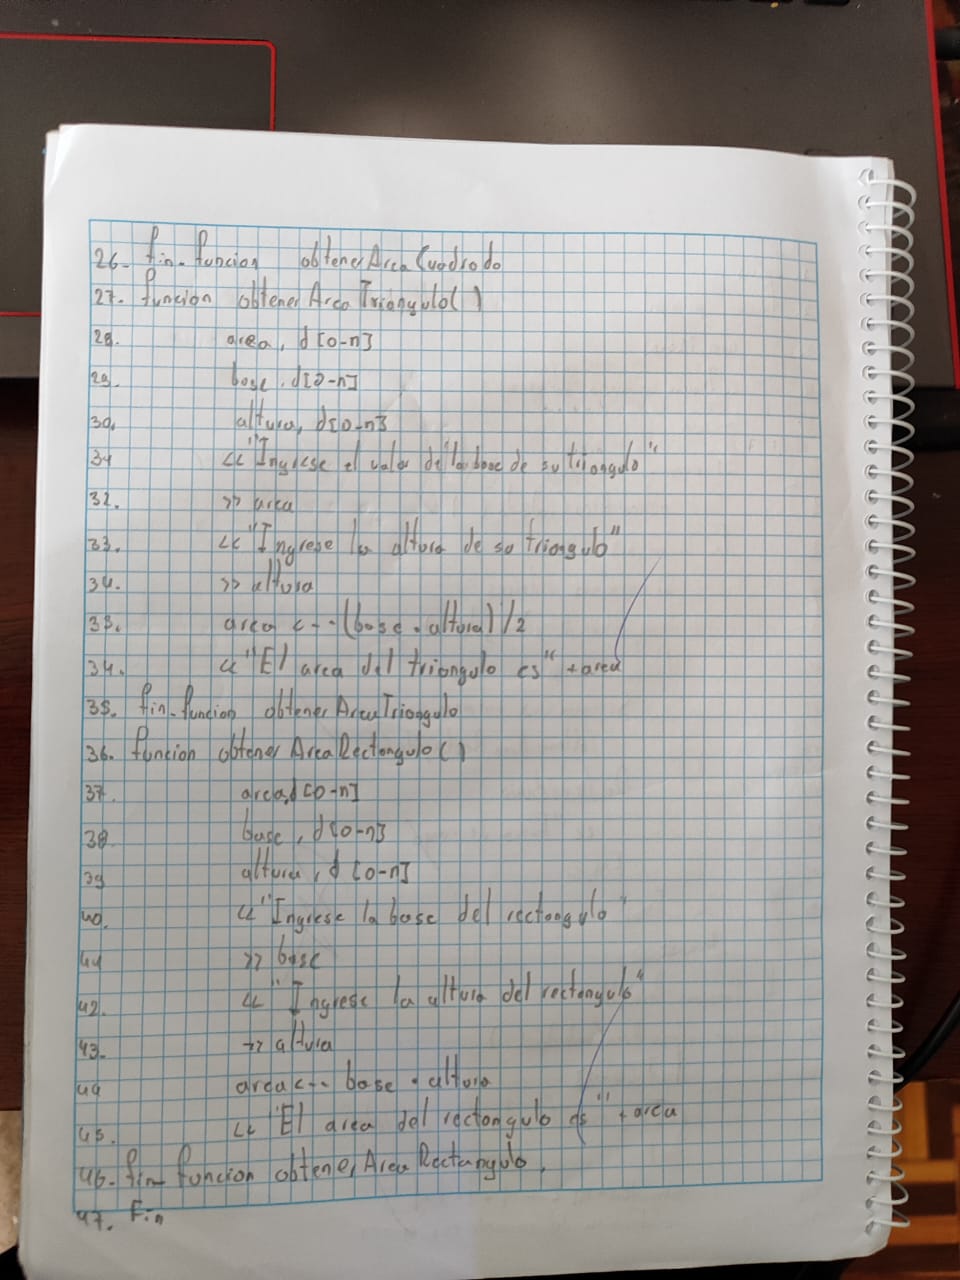 26- fin-funcion obtenerAreaCuadrado
27. funcion obtenerAreaTriangulo()
28. area, d[0-n]
29. base, d[0-n]
30. altura, d[0-n]
31 << "Ingrese el valor de la base de su triangulo"
32. >> area
33. << "Ingrese la altura de su triangulo"
34. >> altura
33. area <-- (base . altura) /2
34. << "El area del triangulo es" + area
35. fin-funcion obtenerAreaTriangulo
36. funcion obtenerAreaRectangulo()
37. area,d[0-n]
38 base, d[0-n]
39 altura, d[0-n]
40. << "Ingrese la base del rectangulo"
41 >> base
42. << "Ingrese la altura del rectangulo"
43- >> altura
44 area <-- base . altura
45. << "El area del rectangulo es" + area
46- fin- funcion obtenerAreaRectangulo.
47. Fin